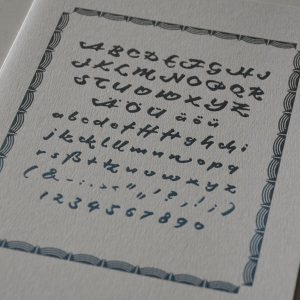 A B C D E F G H I
J K L M N O P Q R
S T U V W X Y Z
Ä Ö Ü ä ö ü
a b c d e f ff ft g h ch i
j k ck l ll m n o p q
r s ß t tz u v w x y z
( & - : . ; « " „ ' ? , ! ; )
1 2 3 4 5 6 7 8 9 0